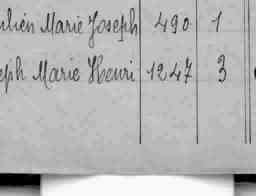 ulien Marie Joseph 490 1
eph Marie Henri 1247 3